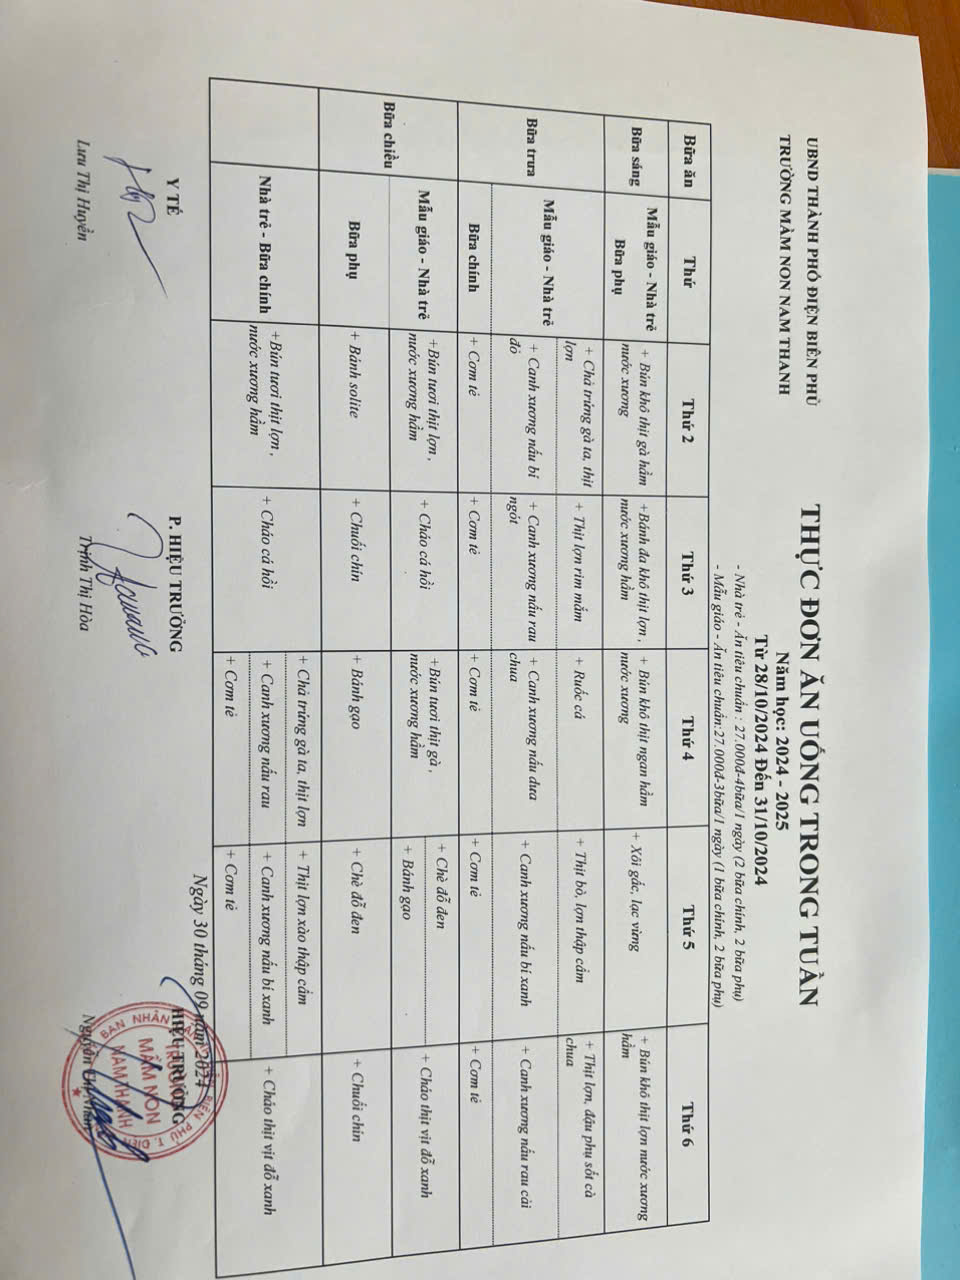 UBND THÀNH PHỐ ĐIỆN BIÊN PHỦ
TRƯỜNG MẦM NON NAM THANH
THỰC ĐƠN ĂN UỐNG TRONG TUẦN
Năm học: 2024 - 2025
Từ 28/10/2024 Đến 31/10/2024
- Nhà trẻ - Ăn tiêu chuẩn : 27.000đ-4bữa/1 ngày (2 bữa chính, 2 bữa phụ)
- Mẫu giáo - Ăn tiêu chuẩn:27.000đ-3bữa/1 ngày (1 bữa chính, 2 bữa phụ)
Bữa ăn Thứ Thứ 2 Thứ 3 Thứ 4 Thứ 5 Thứ 6
Bữa sáng
Mẫu giáo - Nhà trẻ
Bữa phụ
+ Bún khô thịt gà hầm
nước xương
+Bánh đa khô thịt lợn ,
nước xương hầm
+ Bún khô thịt ngan hầm
nước xương
+ Xôi gấc, lạc vừng
+ Bún khô thịt lợn nước xương
hầm
Bữa trưa
Mẫu giáo - Nhà trẻ
Bữa chính
+ Chả trứng gà ta, thịt
lợn
+ Thịt lợn rim mắm
+ Ruốc cá
+ Thịt bò, lợn thập cẩm
+ Thịt lợn, đậu phụ sốt cà
chua
+ Canh xương nấu bí
đỏ
+ Canh xương nấu rau
ngót
+ Canh xương nấu dưa
chua
+ Canh xương nấu bí xanh
+ Canh xương nấu rau cải
+ Cơm tẻ
+ Cơm tẻ
+ Cơm tẻ
+ Cơm tẻ
+ Cơm tẻ
Bữa chiều
Mẫu giáo - Nhà trẻ
Bữa phụ
+Bún tươi thịt lợn ,
nước xương hầm
+ Cháo cá hồi
+Bún tươi thịt gà ,
nước xương hầm
+ Chè đỗ đen
+ Bánh gạo
+ Cháo thịt vịt đỗ xanh
+ Bánh solite
+ Chuối chín
+ Bánh gạo
+ Chè đỗ đen
+ Chuối chín
Nhà trẻ - Bữa chính
+Bún tươi thịt lợn ,
nước xương hầm
+ Cháo cá hồi
+ Chả trứng gà ta, thịt lợn
+ Canh xương nấu rau
+ Cơm tẻ
+ Thịt lợn xào thập cẩm
+ Canh xương nấu bí xanh
+ Cơm tẻ
+ Cháo thịt vịt đỗ xanh
Ngày 30 tháng 09 năm 2024
Y TẾ
P. HIỆU TRƯỞNG
HIỆU TRƯỞNG
MẦM NON
NAM THANH
Lưu Thị Huyền
Trịnh Thị Hòa